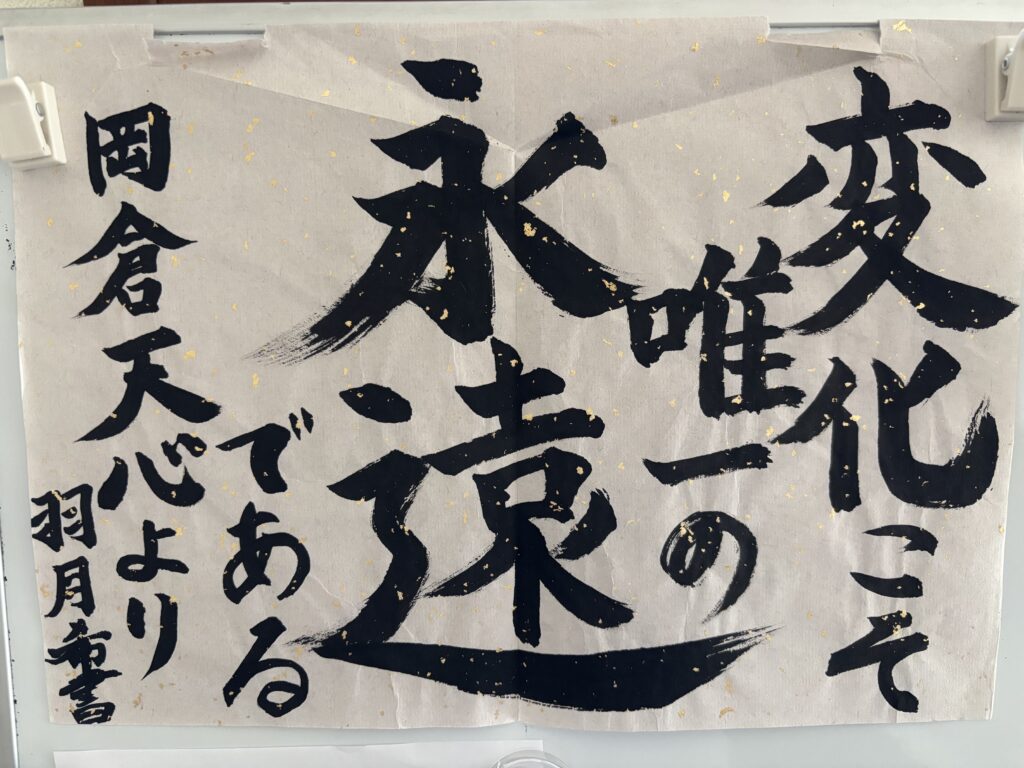 変化こそ
唯一の
永遠
である
岡倉天心より
羽月書